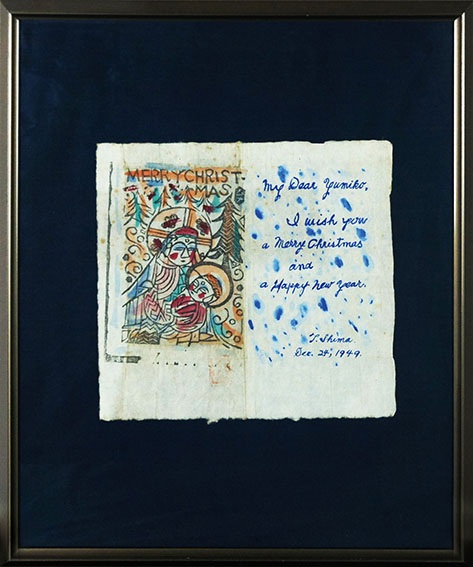 MERRY CHRIST-
MAS
My Dear Yumiko,
I wish you
a Merry Christmas
and
a Happy New Year.
T. Shima
Dec. 24, 1949.